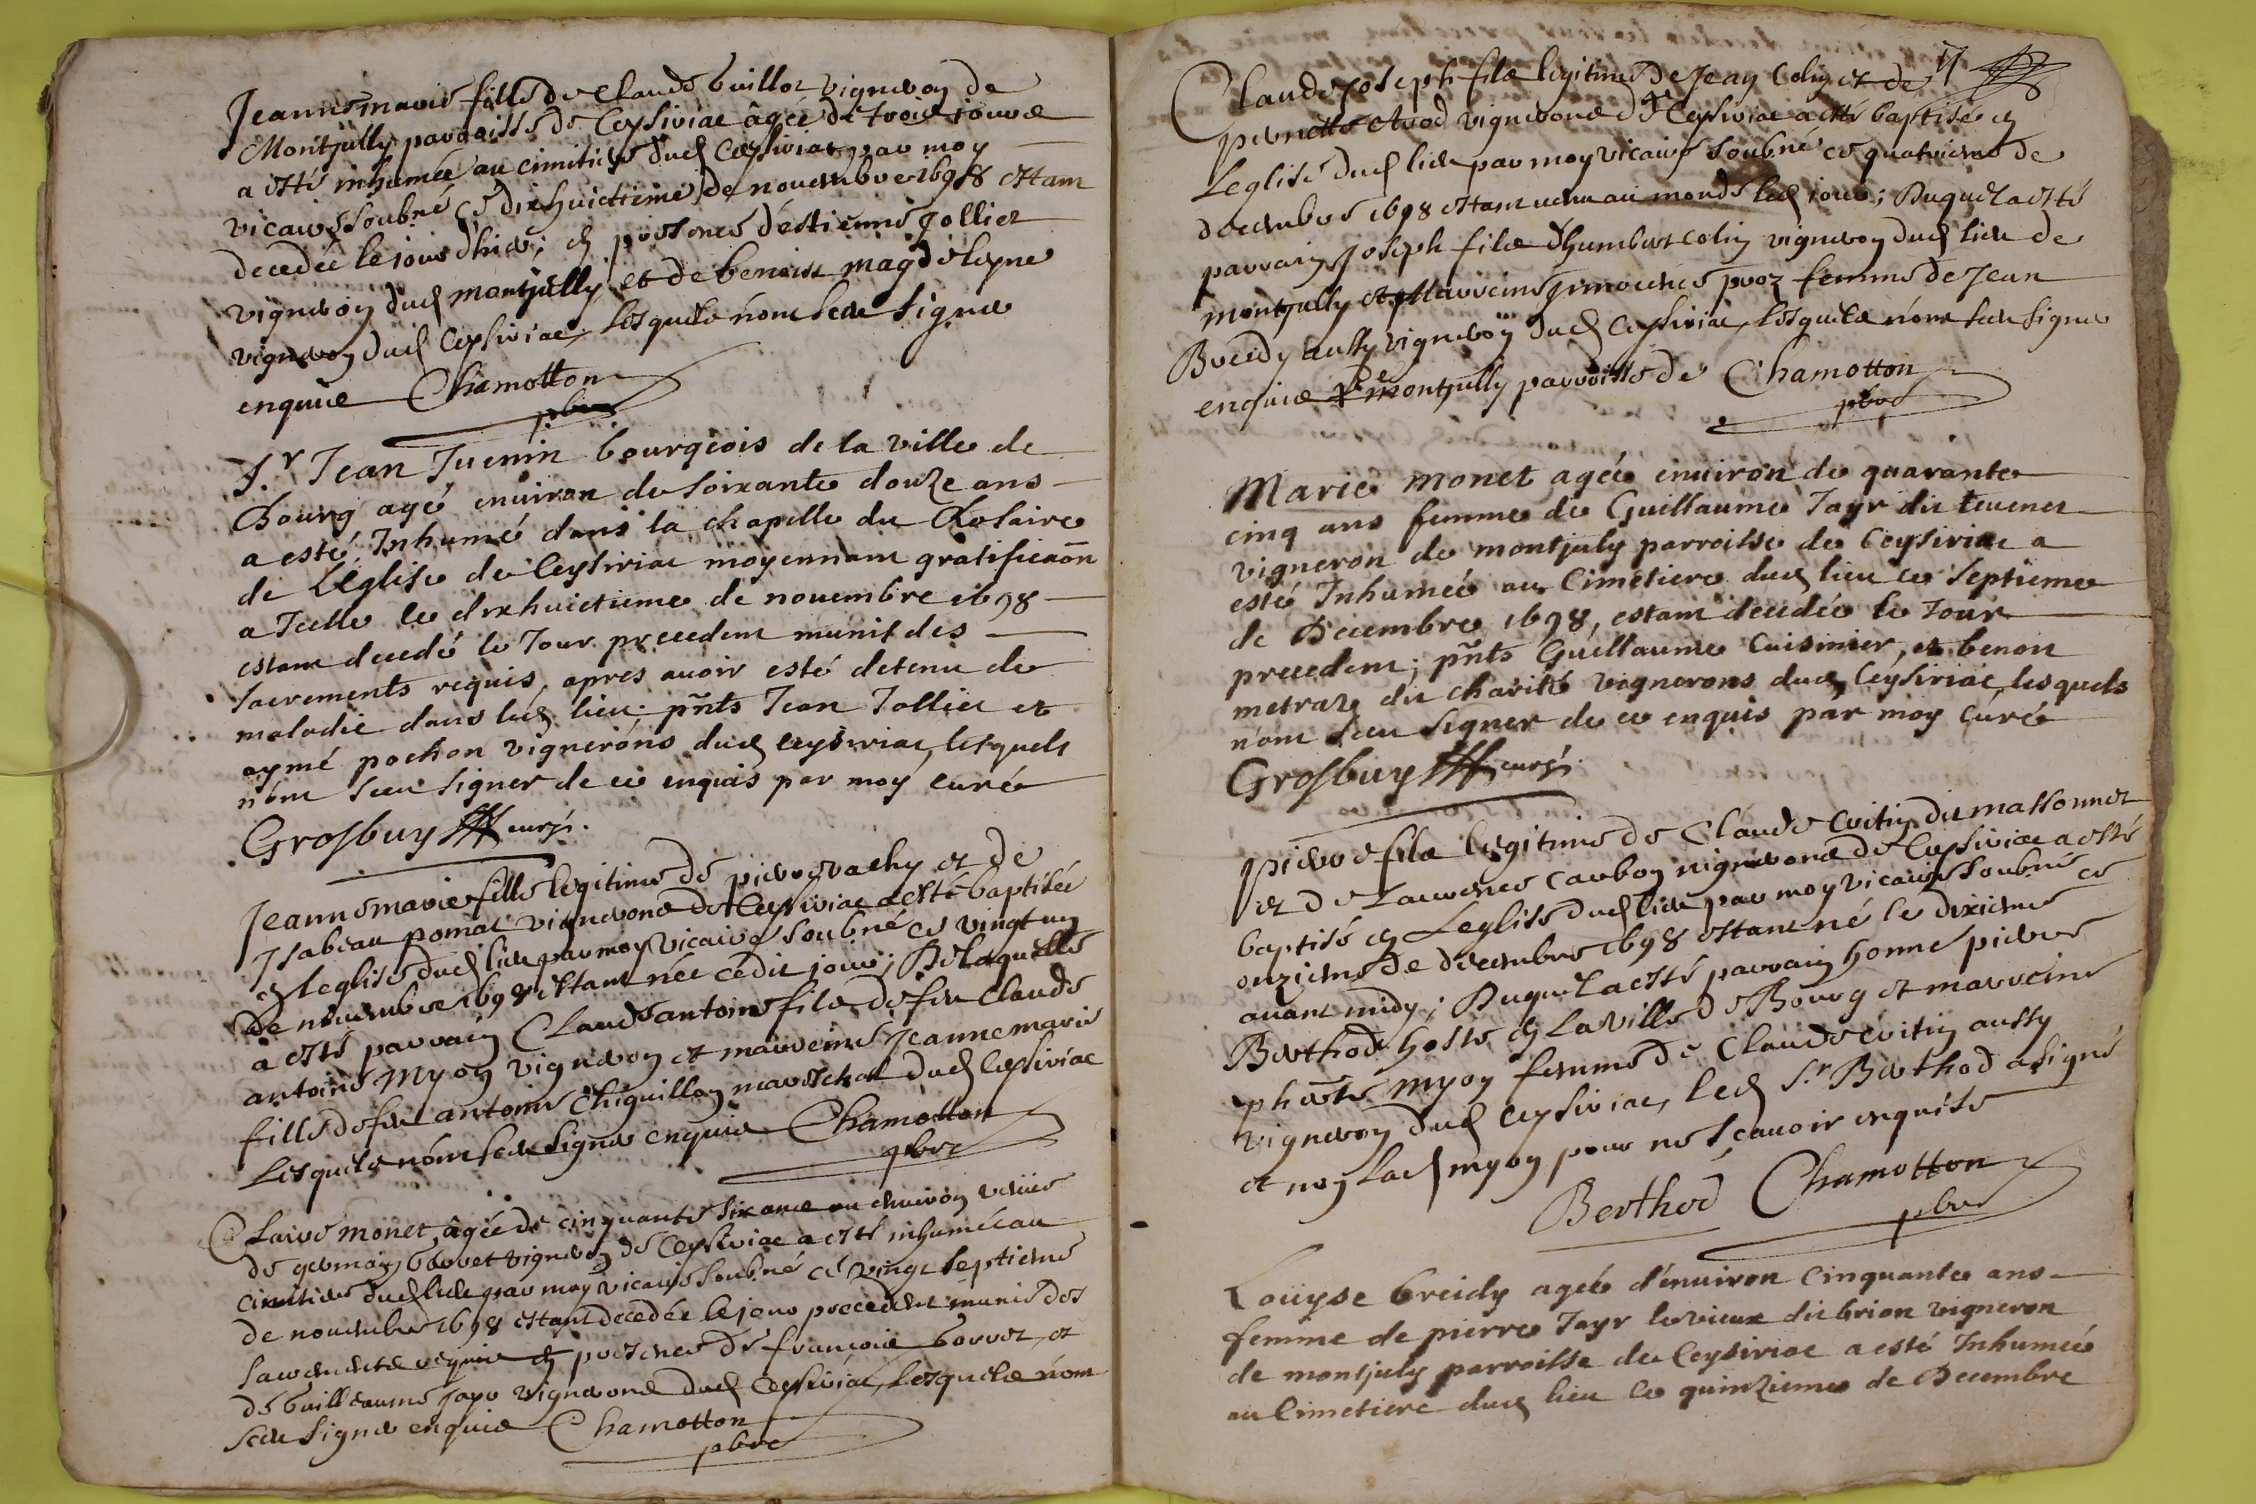 Jeanne marie fille de Claude Guillot vigneron de
Montjully parroisse de Ceysiriac âgée de trois jours
a esté inhumée au cimitiere dud Ceysiriat par moy
vicaire soubné ce dixhuictieme de novembre 1698 estant
decedée le jour d'hier; en presence d'estienne Jollier
vigneron dud montjully et de benoist magdelayne
vigneron dud Ceysiriac, lesquels n'ont sceu signer
enquis Chamotton
pbre
Sr. Jean Juenin bourgeois de la ville de
Bourg agé enuiron de soixante douze ans
a esté Inhumé dans la chapelle du Rosaire
de L'Eglise de Ceysiriac moyennant gratificaõn
a Icelle le dixhuictieme de nouembre 1698
estant decedé le Jour precedent munit des
sacrements requis, apres auoir esté detenu de
maladie dans led lieu; pñts Jean Jollier et
aymé pochon vignerons dud ceysiriac, lesquels
n'ont sceu signer de ce enquis par moy curé
Grosbuy curé.
Jeanne marie fille legitime de pierre vachy et de
Isabeau pomat vignerons de Ceysiriac a esté baptisée
en leglise dud lieu par moy vicaire soubné ce vingt un
de novembre 1698 estant née cedit jour; De laquelle
a esté parrain Claude antoine fils de feu Claude
antoine Myon vigneron et marreine Jeanne marie
fille de feu antoine Chiquillon mareschal dud Ceysiriac
Lesquels n'ont sceu signer enquis Chamotton
pbre
Claire monet, âgée de cinquante six ans ou environ veuve
de germain Gorret vigneron de Ceysiriac a esté inhumée au
cimitiere dud lieu par moy vicaire soubné ce vingt septieme
de novembre 1698 estant decedée le jour precedent munie des
sacrements requis en presence de françois Gorret, et
de Guilleaume Jayr vignerons dud Ceysiriac, lesquels n'ont
sceu signer enquis Chamotton
pbre
7
Claude Joseph fils legitime de Jean Colin et de
pernette vignerons de Ceysiriac a esté baptisé en
Leglise dud lieu par moy vicaire soubné ce quatrieme de
decembre 1698 estant venu au monde led jour; Duquel a esté
parrain Joseph fils d'humbert colin vigneron dud lieu de
montjully et Marreine femme de Jean
Breidy aussy vigneron dud Ceysiriac, lesquels n'ont sceu signer
enquis De montjully parroisse de Chamotton
pbre
Marie monet agée enuiron de quarante
cinq ans femme de Guillaume Jayr dit teuenet
vigneron de montjuly parroisse de Ceysiriac a
esté Inhumée au Cimetiere dud lieu ce septieme
de Decembre 1698, estant decedée le Jour
precedent; pñts Guillaume Cuisinier, et benoit
metraz dit charité vignerons dud Ceysiriac, lesquels
n'ont sceu signer de ce enquis par moy Curé
Grosbuy curé.
pierre fils legitime de Claude Cvitin dit massonnet
et de Laurence carbon vignerons de Ceysiriac a esté
baptisé en Leglise dud lieu par moy vicaire soubné ce
onzieme de decembre 1698 estant né le dixieme
avant midy; Duquel a esté parrain honne pierre
Berthod hoste en La ville de Bourg et marreine
myon femme de Claude Cvitin aussy
vigneron dud Ceysiriac, led Sr. Berthod a signé
et non lad myon pour ne scavoir enquise
Berthod Chamotton
pbre
Loüyse breidy agée d'enuiron cinquante ans
femme de pierre Jayr le vieux dit brion vigneron
de montjuly parroisse de Ceysiriac a esté Inhumée
au Cimetiere dud lieu ce quinzieme de Decembre